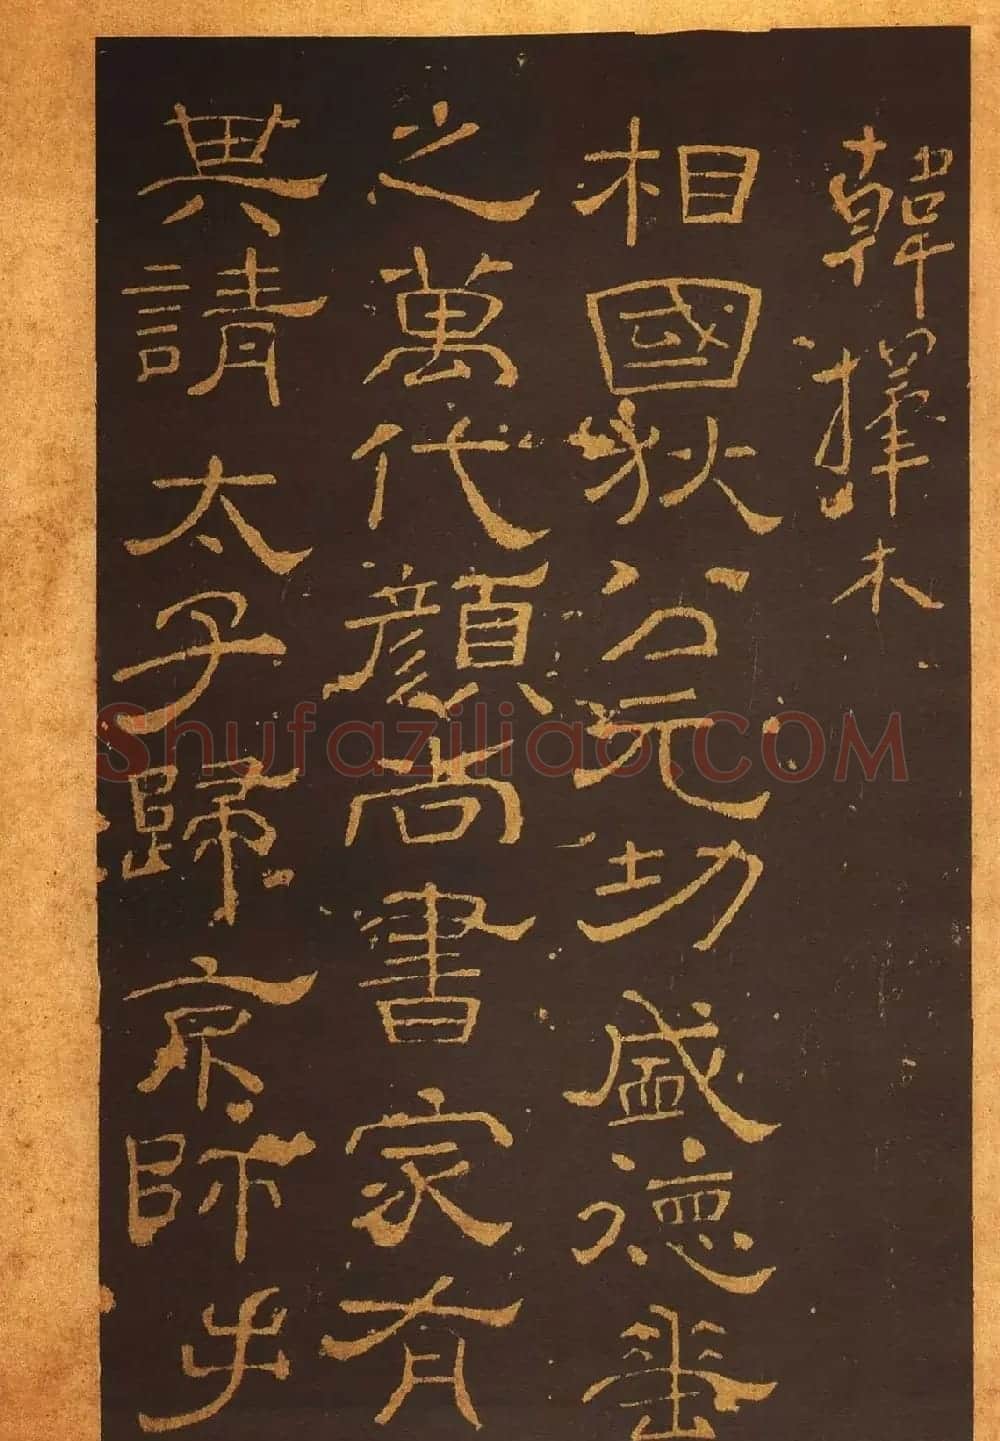 韓擇木
相國狄公元功盛德垂
之萬代顏尚書家有
其請太子歸京師手
Shufaziliao.COM